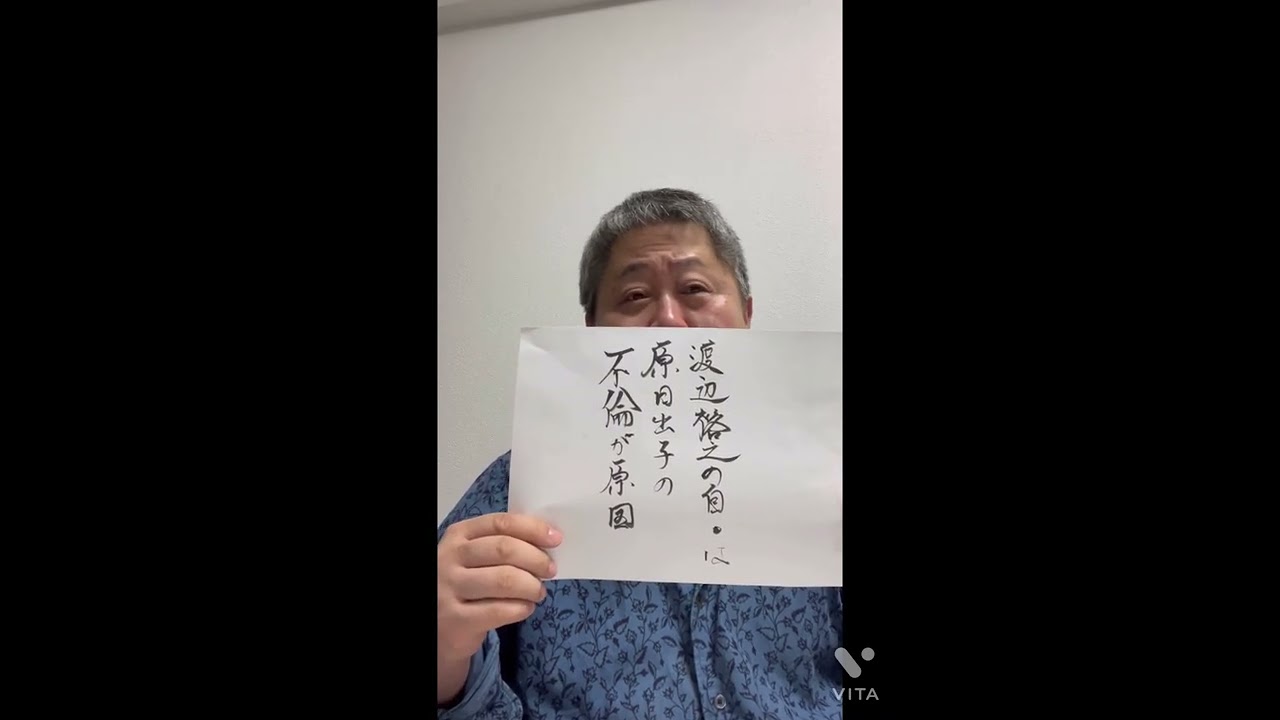 渡辺裕之の自・は
原日出子の
不倫が原因
VITA